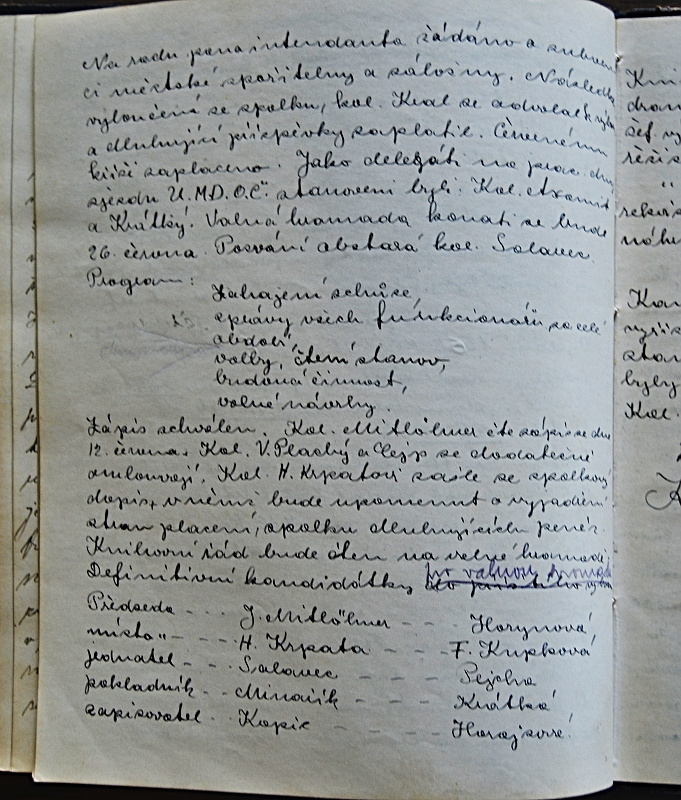 Na radu pana intendanta žádáno o subven
ci městské spořitelny a záložny. Následk
vyloučení ze spolku, kol. Kval se odvolal k
a dlužující příspěvky zaplatil. Červenému
kříži zaplaceno. Jako delegáti na prac. dn
sjezdu Ú.M.D.O.Č. stanoveni byli: Kol.
a Krátký. Valná hromada konati se bude
26. června. Pozvání obstará kol. Salavec.
Program:
Zahájení schůze,
zprávy všech funkcionářů za celé
období,
volby, čtení stanov,
budoucí činnost,
volné návrhy.
Zápis schválen. Kol. Mitlöhner čte zápis ze dne
12. června. Kol. V. Plachý a Cejp se dodatečně
omlouvají. Kol. H. Krpatovi zašle se spolkový
dopis, v němž bude upomenut o vyjádření
stran placení, spolku dlužujících peněz.
Knihovní řád bude čten na valné hromadě.
Definitivní kandidátky pro valnou hromadu
do příštího
Předseda - - - J. Mitlöhner - - - Horynová
místo " - - - H. Krpata - - - F. Krupková
jednatel - - Salavec - - - - Pejcha
pokladník - - Minařík - - - - Krátká
zapisovatel - - Kopic - - - -
Kni
dram
šéf. v
režis
"
rekvis
náhr
Kan
stan
byly
Kol.